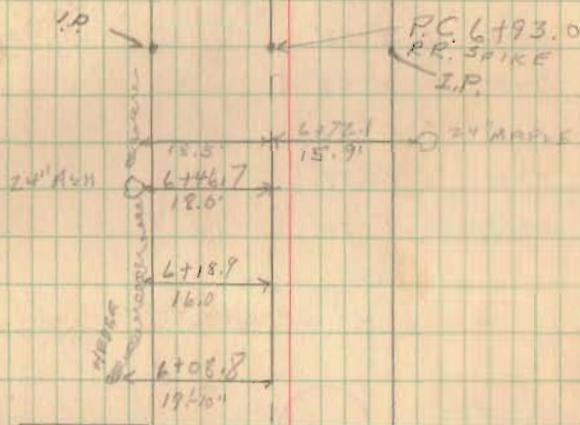 I.P.
P.C. 6+93.0
R.R. SPIKE
I.P.
6+72.1
18.5'
15.9'
24" MAPLE
24" ASH
6+46.7
18.0'
6+18.9
16.0
HEDGE
6+08.8
19'-10"